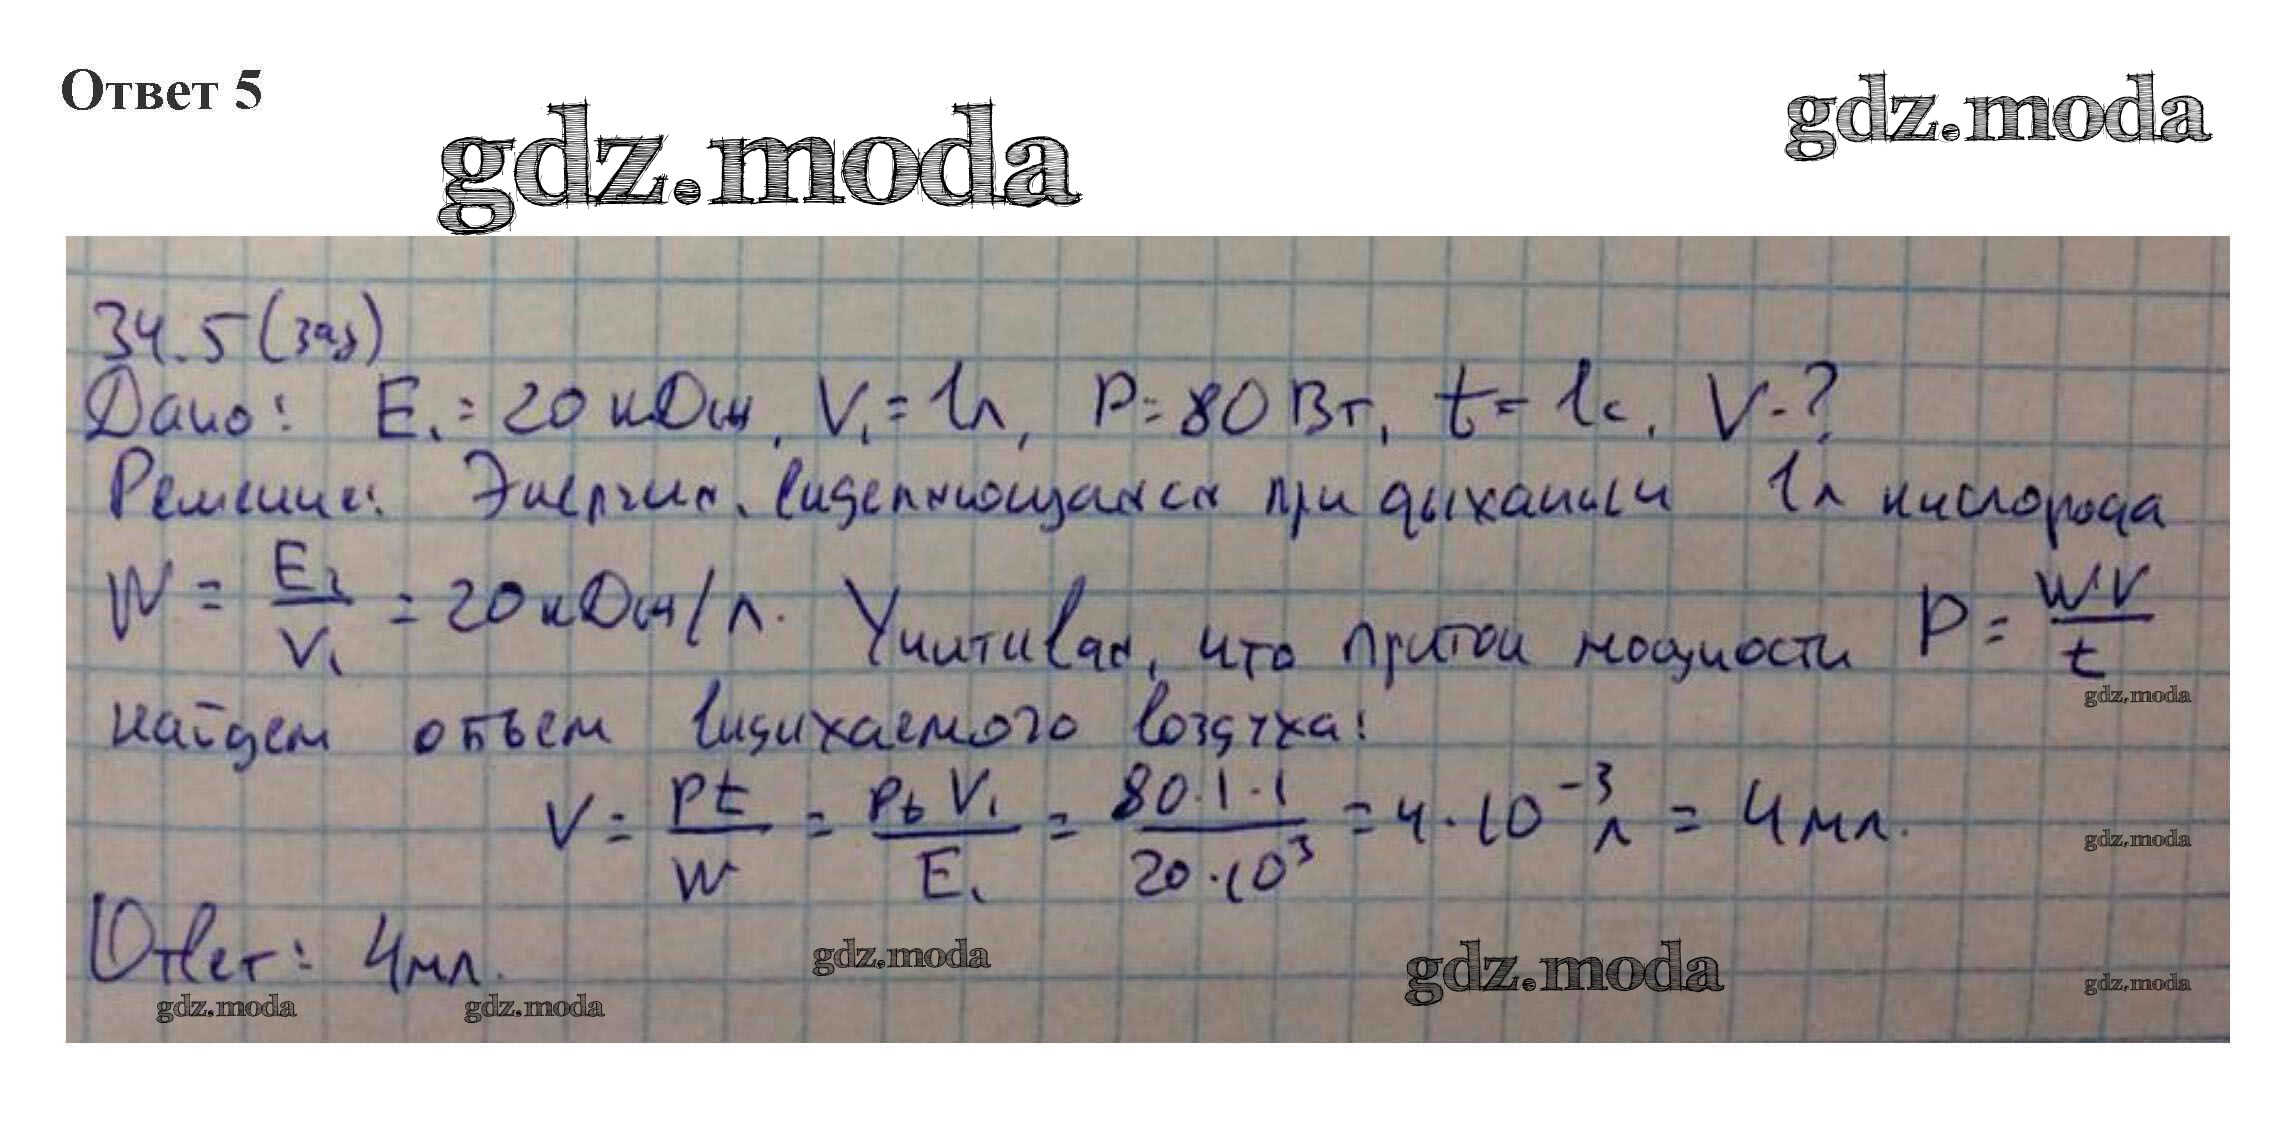 Ответ 5
gdz.moda
gdz.moda
34.5 (зад)
Дано: E₁ = 20 кДж, V₁ = 1л, P = 80 Вт, t = 1с. V-?
Решение: Энергия, выделяющаяся при дыхании 1л кислорода
W = E₁/V₁ = 20 кДж/л. Учитывая, что приток мощности P = W·V/t
gdz.moda
найдем объем вдыхаемого воздуха:
V = Pt/W = Pt V₁/E₁ = 80·1·1/20·10³ = 4·10⁻³ л = 4 мл.
gdz.moda
Ответ: 4 мл.
gdz.moda
gdz.moda
gdz.moda
gdz.moda
gdz.moda